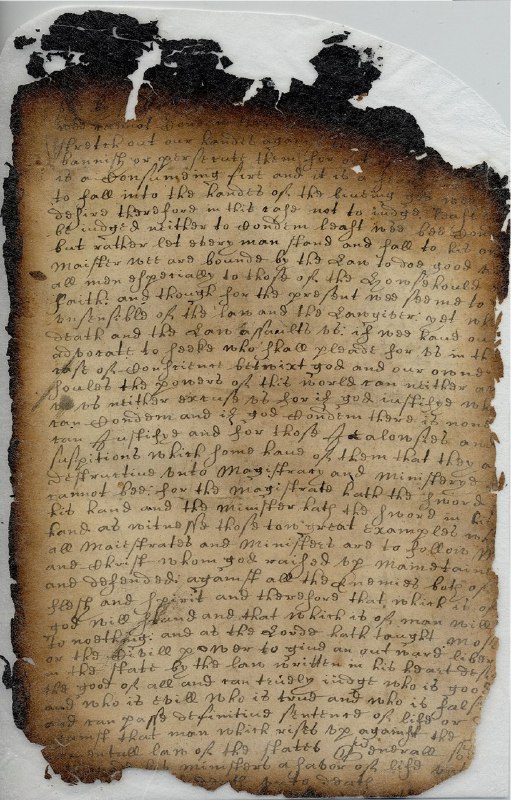 wee cannot
stretch out our handes against
bannish or persecute them for out
is a Consumeing fire and it is a
to fall into the handes of the liueing god wee
desire therefore in this case not to iudge least
be iudged neither to Condem least wee bee
but rather let euery man stand and fall to his
Maister wee are bounde by the Law to doe good
all men espetially to those of the Howsehould
faith: and though for the present wee seeme to
vnsensible of the law and the Lawgiver: yet wh
death and the Law assaults vs: if wee haue our
advocate to seeke who shall pleade for vs in th
case of Conscience betwixt god and our owne
soules the powers of this world can neither
vs neither excuse vs for if god iustifye wh
can Condem and if god Condem there is non
can Justifye and for those Jealowsies an
suspitions which some haue of them that they a
destructiue vnto Magistracy and Ministerye
cannot bee: for the Magistrate hath the sword
his hand and the Minister hath the sword in his
hand as witnesse those tow great examples wh
all Maiestrates and Ministers are to follow
and Christ whom god raised vp maintain
and defended: against all the Enemies both of
flesh and spirit and therefore that which is of
god will stand and that which is of man will
to noething: and as the Lorde hath taught Mos
or the Civill power to giue an outward liber
in the state by the law written in his heart des
the good of all and can truely iudge who is good
and who is evill who is true and who is fals
and can passe definitiue sentence of life or
against that man which rises vp against the
law of the states Generall so
ministers a savor of life
death to death